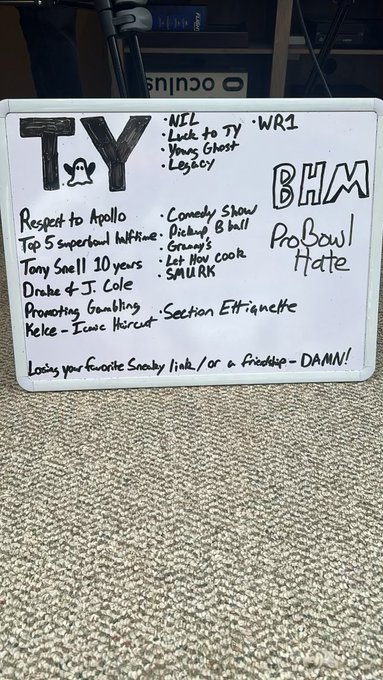 oculus
T.Y
· NIL
· Luck to TY
· Young Ghost
· Legacy
· WR1
BHM
Pro Bowl
Hate
Respect to Apollo
Top 5 superbowl halftime
Tony Snell 10 years
Drake & J. Cole
Promoting Gambling
Kelce - Iconic Haircut
· Comedy Show
· Pickup B ball
· Granny's
· Let Hov Cook
· SMURK
· Section Ettiquette
Losing your favorite Sneaky link / or a friendship - DAMN!